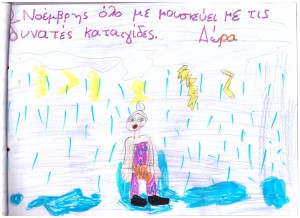 Νοέμβρης όλο με μουσκεύει με τις
δυνατές καταιγίδες. Δώρα